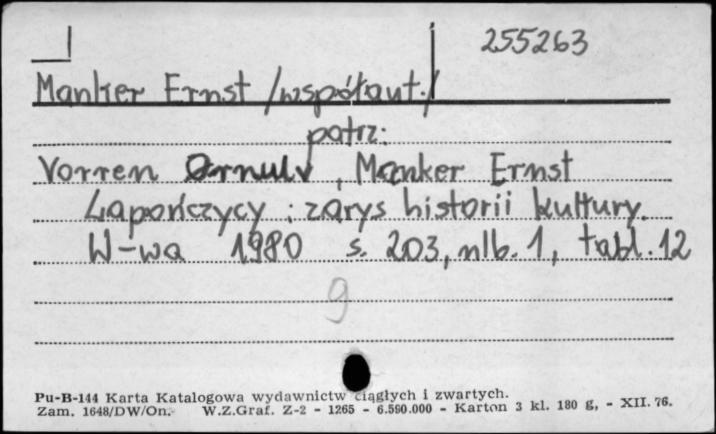 255263
Manker Ernst /współaut./
patrz:
Vorren Ørnulv, Manker Ernst
Lapończycy : zarys historii kultury.
W-wa 1980 s. 203, nlb. 1, tabl. 12
9
Pu-B-144 Karta Katalogowa wydawnictw ciągłych i zwartych.
Zam. 1648/DW/On. W.Z.Graf. Z-2 - 1265 - 6.590.000 - Karton 3 kl. 180 g, - XII. 76.